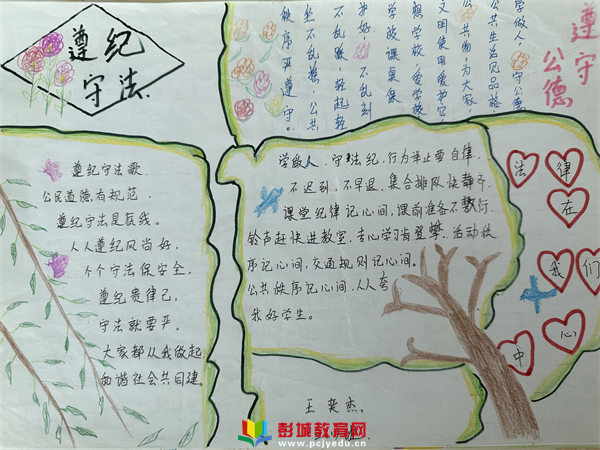 遵纪
守法
遵纪守法歌
公民道德有规范，
遵纪守法是底线。
人人遵纪风尚好，
个个守法保安全，
遵纪贵律己，
守法就要严。
大家都从我做起
和谐社会共同建。
遵守
公德
学做人，守公德
公共生活见品格，
公共物，为大家，
文明使用爱护它
想学校，爱学校
学校课桌保
护好，不乱刻
不乱跳，轻起轻
坐不乱挤。公共
秩序严遵守。
学做人，守法纪，行为举止要自律，
不迟到，不早退，集合排队快静齐
课堂纪律记心间，课前准备不敷衍
铃声赶快进教室，专心学习肯登攀，活动秩
序记心间，交通规则记心间。
公共秩序记心间，人人夸
我好学生。
法律
在
我们
心
中
王奕杰
彭城教育网
www.pcjyedu.cn